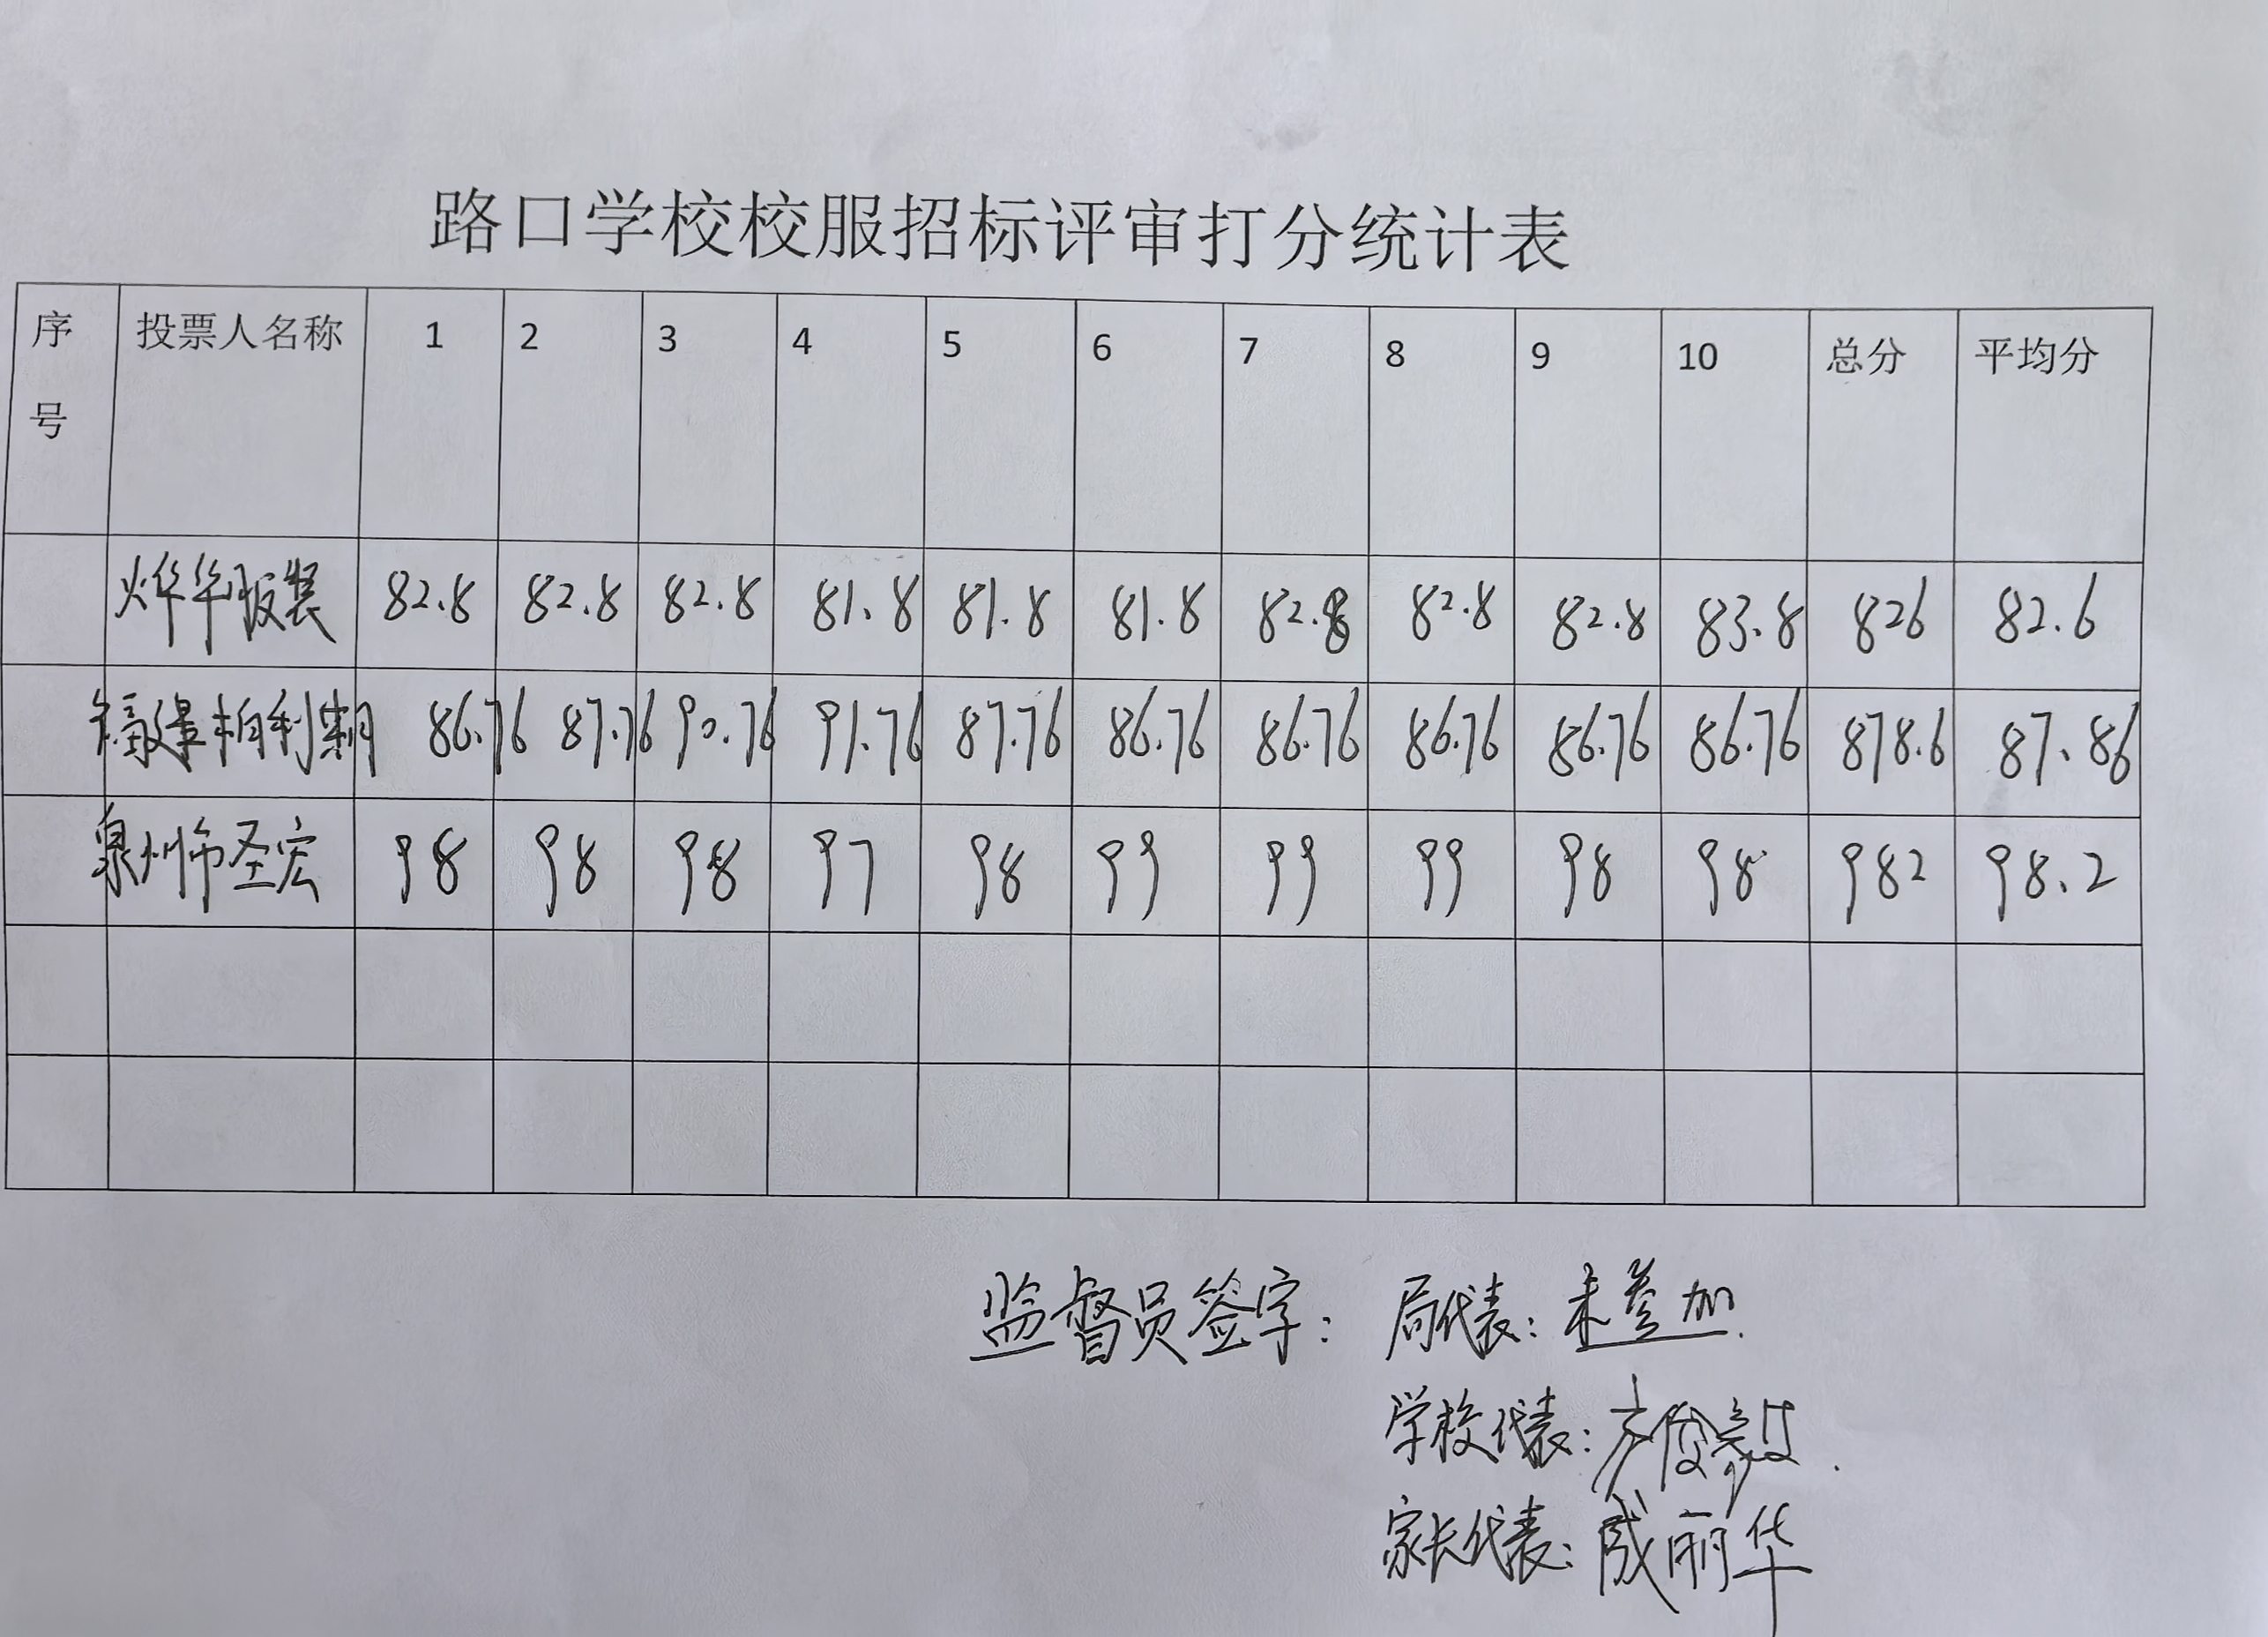 路口学校校服招标评审打分统计表
序号 投票人名称 1 2 3 4 5 6 7 8 9 10 总分 平均分
烨华服装 82.8 82.8 82.8 81.8 81.8 81.8 82.8 82.8 82.8 83.8 826 82.6
福建柏利斯 86.76 87.76 90.76 91.76 87.76 86.76 86.76 86.76 86.76 86.76 878.6 87.86
泉州市圣宏 98 98 98 97 98 99 99 99 98 98 982 98.2
监督员签字: 局代表: 未参加.
学校代表: 方俊
家长代表: 丽华